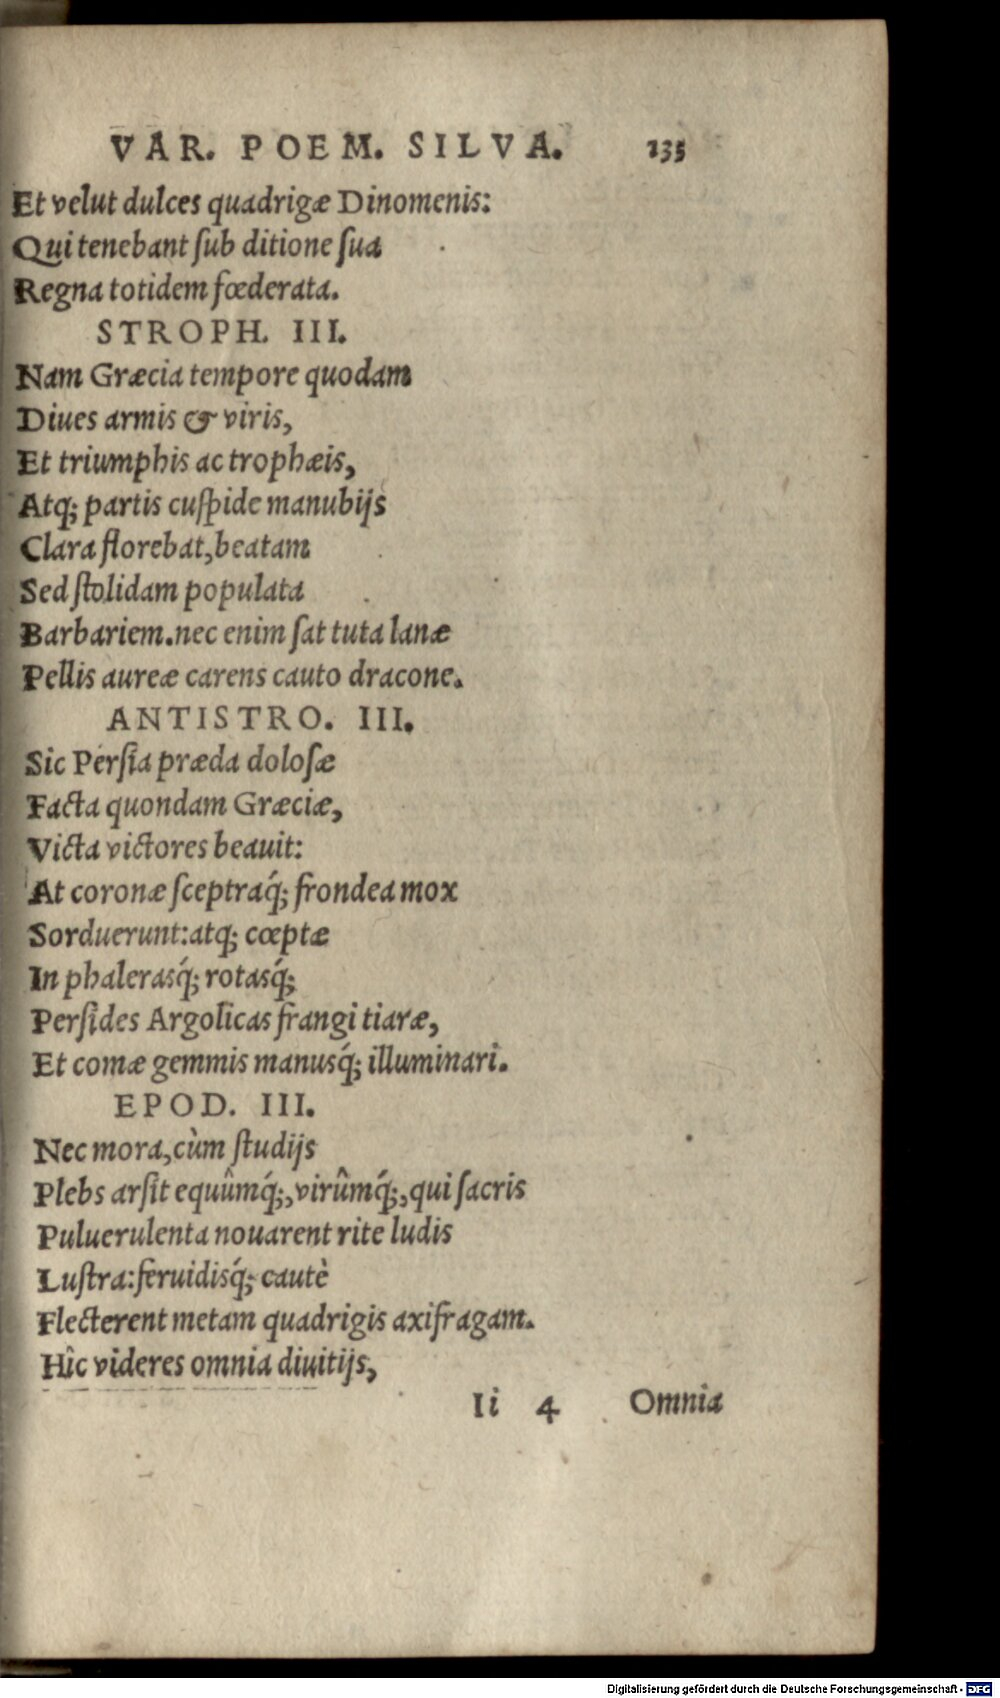 VAR. POEM. SILVA. 135
Et velut dulces quadrigæ Dinomenis:
Qui tenebant ſub ditione ſua
Regna totidem fœderata.
STROPH. III.
Nam Græcia tempore quodam
Diues armis & viris,
Et triumphis ac trophæis,
Atq; partis cuſpide manubijs
Clara florebat, beatam
Sed ſtolidam populata
Barbariem. nec enim ſat tuta lanæ
Pellis aureæ carens cauto dracone.
ANTISTRO. III.
Sic Perſia præda doloſæ
Facta quondam Græciæ,
Victa victores beauit:
At coronæ ſceptraq́; frondea mox
Sorduerunt: atq; cœptæ
In phalerasq́; rotasq́;
Perſides Argolicas frangi tiaræ,
Et comæ gemmis manusq́; illuminari.
EPOD. III.
Nec mora, cùm ſtudijs
Plebs arſit equûmq́;, virûmq́;, qui ſacris
Puluerulenta nouarent rite ludis
Luſtra: feruidisq́; cautè
Flecterent metam quadrigis axifragam.
Hîc videres omnia diuitijs,
Ii 4 Omnia
Digitalisierung gefördert durch die Deutsche Forschungsgemeinschaft - DFG